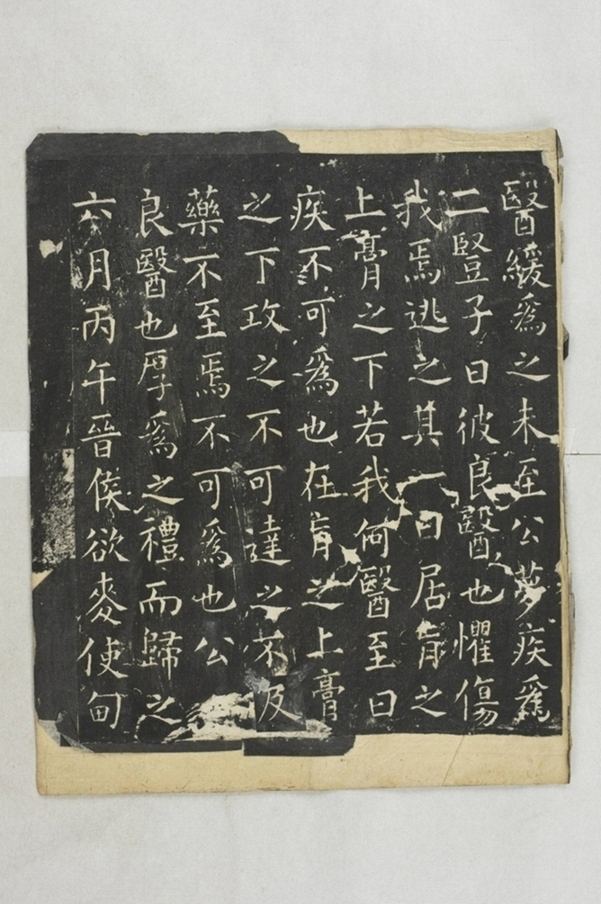 醫緩為之未至公夢疾為
二豎子曰彼良醫也懼傷
我焉逃之其一曰居肓之
上膏之下若我何醫至曰
疾不可為也在肓之上膏
之下攻之不可達之不及
藥不至焉不可為也公曰
良醫也厚為之禮而歸之
六月丙午晉侯欲麥使甸